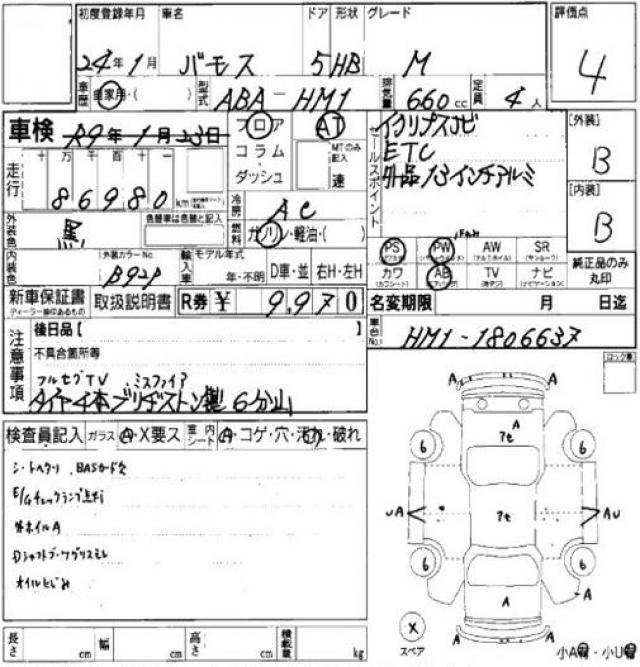 初度登録年月 車名 ドア 形状 グレード 評価点
24年1月 バモス 5HB M 4
車歴 自家用・( ) 型式 ABA-HM1 排気量 660cc 定員 4人
車検 R9年1月23日 フロア AT
コラム MTのみ記入
ダッシュ 速
セールスポイント
イクリプスナビ
ETC
外品13インチアルミ
[外装] B
[内装] B
走行 十万千百十一
86980km
冷房 AC
外装色 黒 色替車は色替と記入
燃料 ガソリン・軽油・( )
内装色 外装カラーNo. B92P
輸入車 モデル年式 年・不明 D車・並 右H・左H
PS PW AW SR
カワ AB TV ナビ
純正品のみ丸印
新車保証書 取扱説明書 R券 ¥ 9,970
ディーラー捺印あるもの
名変期限 月 日迄
車台No. HM1-1806637
注意事項
後日品【 】
不具合箇所等
フルセグTV ミスファイア
タイヤ4本ブリヂストン製 6分山
検査員記入 ガラス A・X要ス 室内シート A・コゲ・穴・汚れ・破れ
シートヘタリ BASカード欠
E/Gチェックランプ点灯
外ホイルA
Dシャフトブーツグリスモレ
オイルにじみ
ロック車
A A
A
アセ
6 6
UA アセ AU
6 6
A
A
A A
X スペア
小A有・小U有
長さ cm 幅 cm 高さ cm 積載量 kg